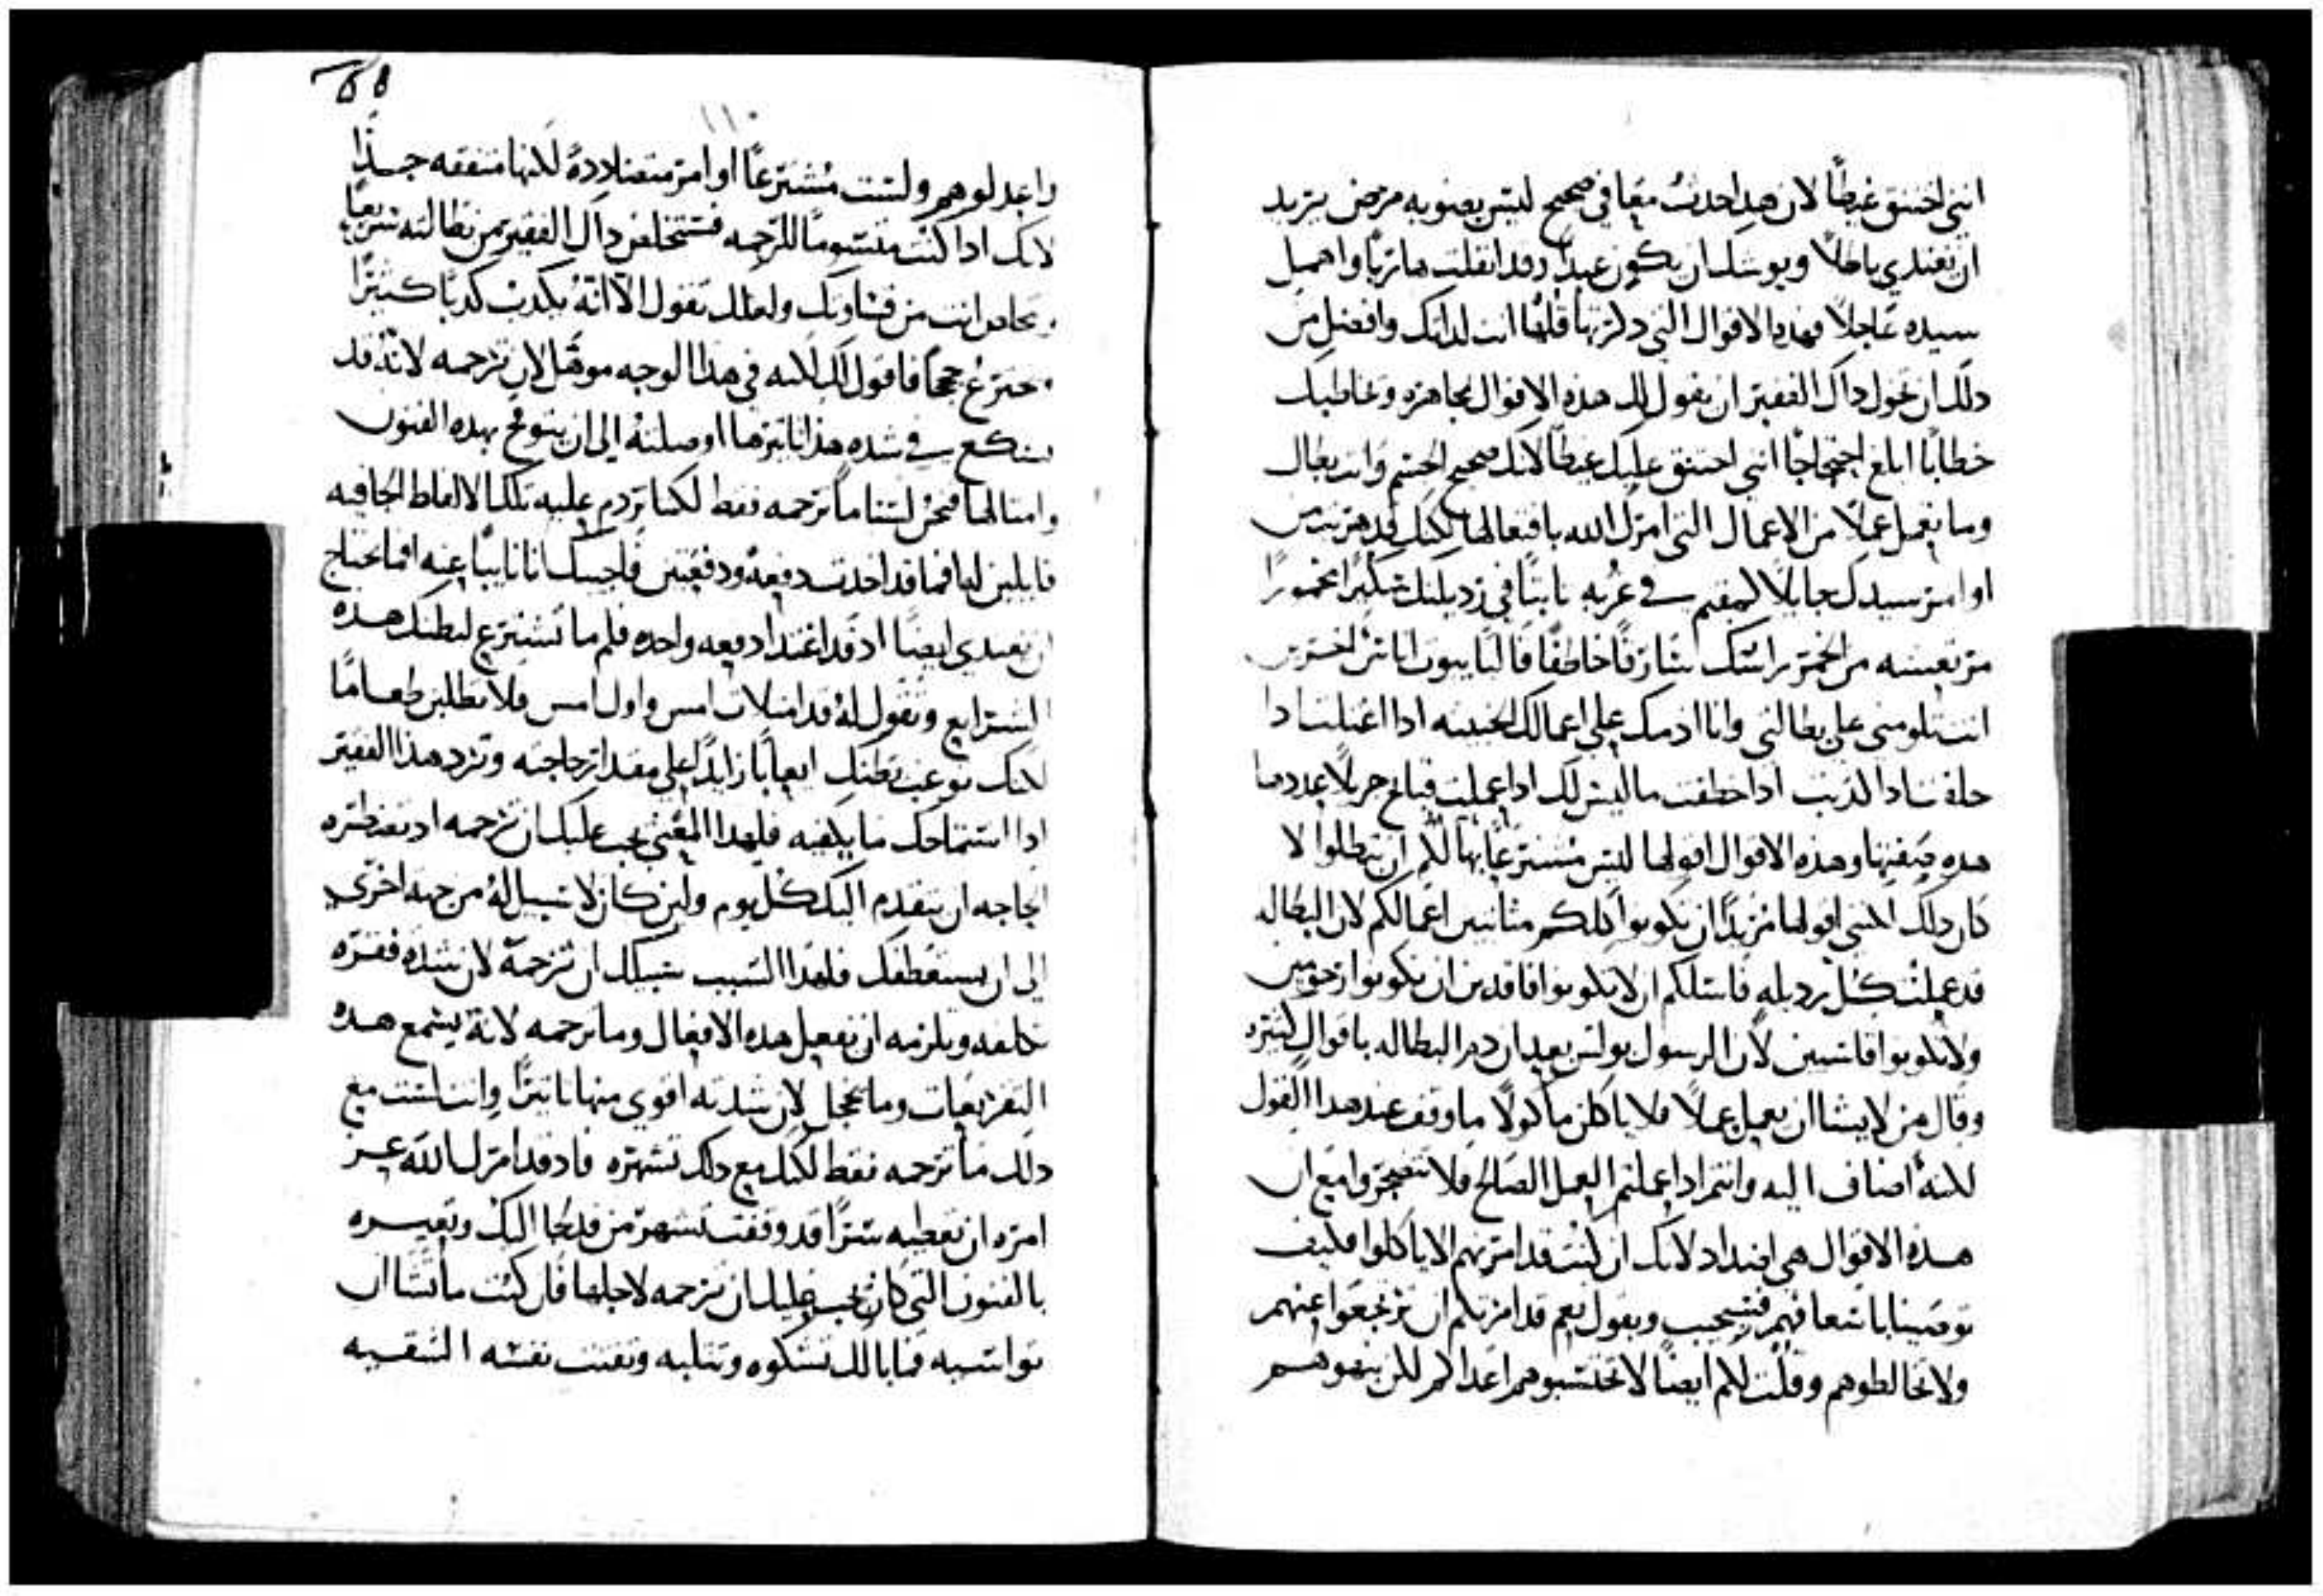 انني اختنق غيظًا لان هدا حدث معافي صحيح ليس بصنوبه مرض يريد
ان يغتدي باطلاً ويوشك ان يكون عبدًا وقد انفلت هاربًا واهمل
سيده عاجلاً فهده الاقوال التي دكرتها قلها انت لداتك وافضل من
دلك ان تخول داك الفقير ان يقول لك هده الاقوال مجاهره ويخاطبك
خطابًا ابلغ احتجاجًا انني اختنق عليك غيظًا لانك صحيح الجسم وانت بطال
وما تعمل عملاً من الاعمال التي امرك الله بافتعالها لكنك قد هربت من
اوامر سيدك جايلاً كمقيم في غربه تابتًا في رديلتك سكيرًا مخمورًا
انت تلومني على بطالتي وانا ادمك على اعمالك الخبيثه ادا اغتلت ادا
حلفت ادا كذبت ادا خطفت ما ليس لك ادا عملت قبايح جزيلاً عددها
هده صفتها وهذه الاقوال اقولها ليس مشترعًا بها لكم ان تبطلوا لا
كان دلك لكنني اقولها مريدًا ان تكونوا كلكم مثابرين اعمالكم لان البطاله
قد علمت كل رديله فاسئلكم ان لا تكونوا فاقدين ان تكونوا رحومين
ولا تكونوا قاسيين لان الرسول بولس بعد ان دم البطاله باقوال كثيره
وقال من لا يشا ان يعمل عملاً فلا ياكلن ماكولاً ما وقف عند هدا القول
لكنه اضاف اليه وانتم ادا عملتم العمل الصالح فلا تضجروا مع ان
هده الاقوال هي اضداد لانك ان كنت قد امرتهم الا ياكلوا فكيف
توصينا باسعافهم فيجيب ويقول نعم قد امرتكم ان ترتجعوا عنهم
ولا تخالطوهم وقلت لكم ايضًا لا تحتسبوهم اعداكم لكن عظوهم
واعدلوهم ولست مشترعًا اوامر متضاددةً لكنها متفقه جدًا
لانك ادا كنت مقسومًا للرحمه فستتخلص داك الفقير من بطالته سريعًا
وتخلص انت من قساوتك ولعلك تقول الا انه يكدب كدبًا كثيرًا
ويخترع حججًا فاقول لك لانه في هدا الوجه موهل لان ترحمه لانه قد
سكع في شده هذا تاثيرها اوصلته الى ان يتوقح بهده الفنون
وامثالها فنحن لسنا ما نرحمه فقط لكنا نردم عليه تلك الالفاظ الجافيه
قايلين له افما قد اخدت دفعةً ودفعتين فاجيبك انا نايبًا عنه افما يحتاج
ان يغتدي ايضًا اد قد اغتدا دفعه واحده فلم ما تشترع لبطنك هده
الشرايع وتقول له قد امتلات امس واول امس فلا تطلبن طعامًا
لكنك توعب بطنك ايعابًا زايدًا على مقدار حاجته وترد هذا الفقير
ادا استماحك ما يكفيه فلهدا المعنى يجب عليك ان ترحمه اد تضطره
الحاجه ان يتقدم اليك كل يوم ولين كان لا سبيل له من جهه اخرى
الى ان يستعطفك فلهدا السبب سبيلك ان ترحمه لان شدة فقره
تكلفه وتلزمه ان يفعل هده الافعال وما ترحمه لانه يسمع هده
التقريعات وما يخجل لان شدته اقوى منها تاتيرًا وانت لست مع
دلك ما ترحمه فقط لكنك مع دلك تشهره فاد قد امرك الله عز
امره ان تعطيه سرًا قد وقفت تشهر من قد لجا اليك وتعيره
بالفنون التي كان يجب عليك ان ترحمه لاجلها فان كنت ما تشا ان
تواسيه فما بالك تشكوه وتتلبه وتفتت نفسه الشقيه